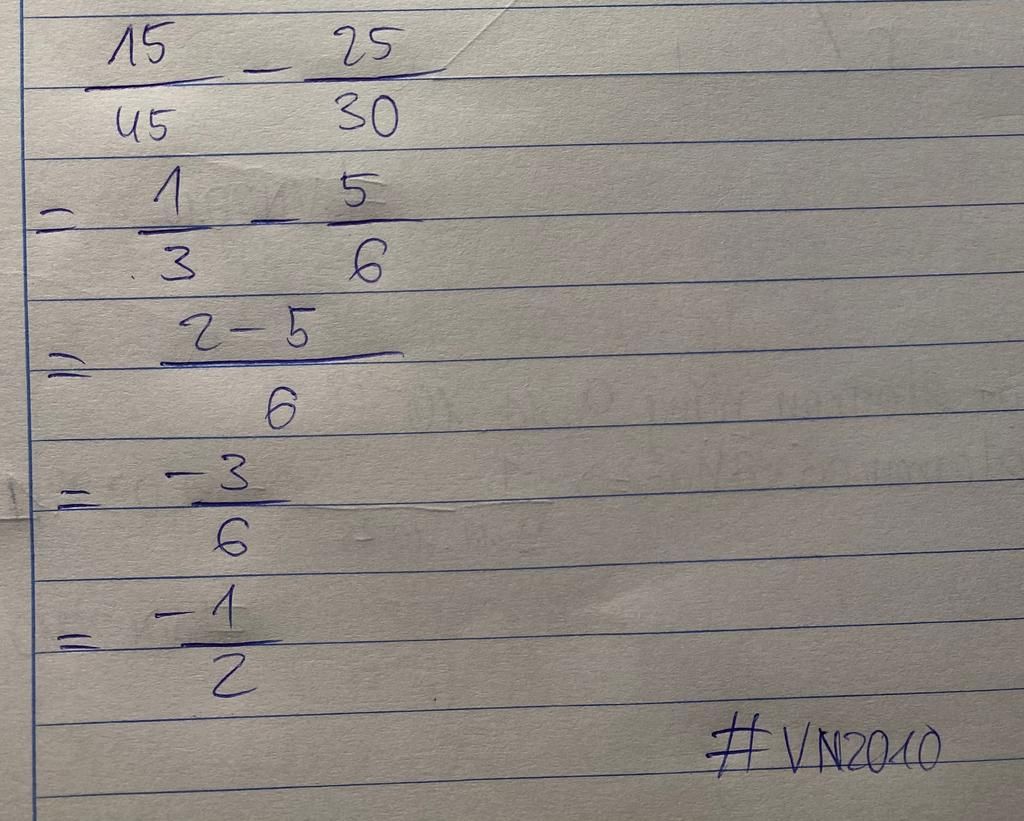 15/45 - 25/30
= 1/3 - 5/6
= (2 - 5)/6
= -3/6
= -1/2
#VN2010